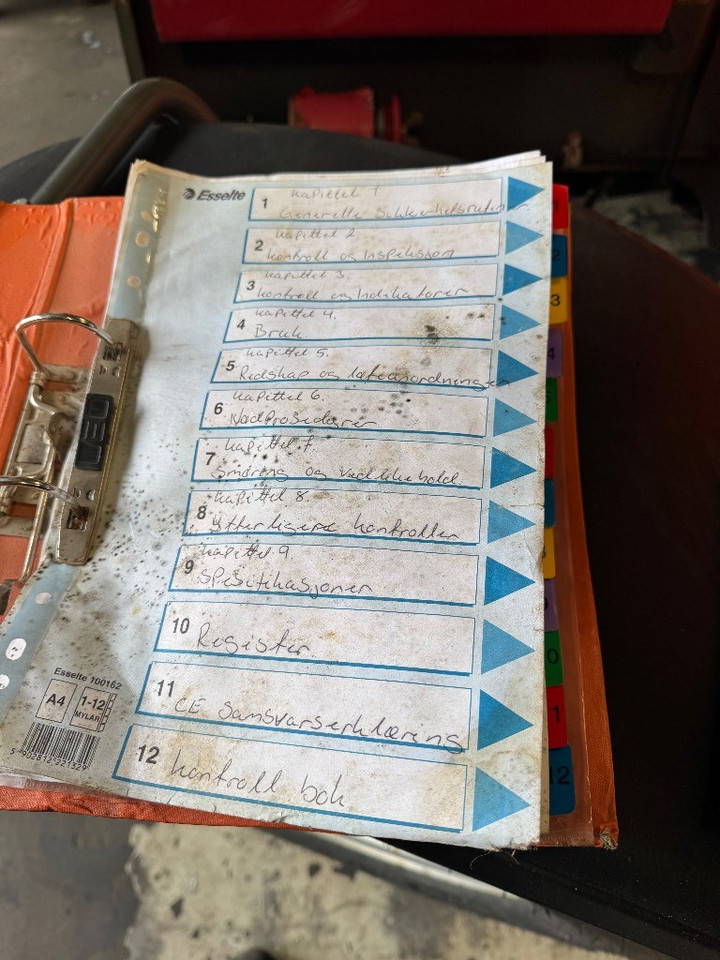 Esselte
1 Kapittel 1
Generelle Sikkerhetsrutiner
2 Kapittel 2
Kontroll og Inspeksjon
3 Kapittel 3.
Kontroll og Indikatorer
4 Kapittel 4.
Bruk
5 Kapittel 5.
Redskap og løfteanordninger
6 Kapittel 6.
Nødprosedyrer
7 Kapittel 7.
Smøring og Vedlikehold
8 Kapittel 8.
Ytterligere kontroller
9 Kapittel 9.
Spesifikasjoner
10 Register
11 CE Samsvarserklæring
12 Kontroll bok
Esselte 100162
A4
1-12
MYLAR
5 902812 221329
LEO
1
2
3
4
5
1
12